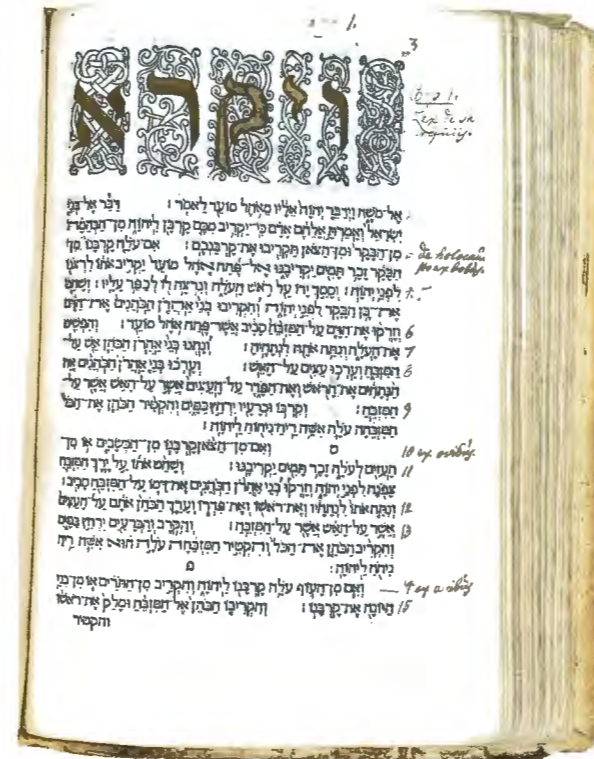 1.
3
ויקרא
אל־משה וידבר יהוה אליו מאהל מועד לאמר : דבר אל־בני
ישראל ואמרת אלהם אדם כי־יקריב מכם קרבן ליהוה מן־הבהמה
מן־הבקר ומן־הצאן תקריבו את־קרבנכם : אם־עלה קרבנו מן־ de holocau
הבקר זכר תמים יקריבנו אל־פתח אהל מועד יקריב אתו לרצנו ex bobus.
לפני יהוה : וסמך ידו על ראש העלה ונרצה לו לכפר עליו : ושחט
את־בן הבקר לפני יהוה והקריבו בני אהרן הכהנים את־הדם
וזרקו את־הדם על־המזבח סביב אשר־פתח אהל מועד : והפשיט 6
את־העלה ונתח אתה לנתחיה : ונתנו בני אהרן הכהן אש על־ 7
המזבח וערכו עצים על־האש : וערכו בני אהרן הכהנים את 8
הנתחים את־הראש ואת־הפדר על־העצים אשר על־האש אשר על־
המזבח : וקרבו וכרעיו ירחץ במים והקטיר הכהן את־הכל 9
המזבחה עלה אשה ריח־ניחוח ליהוה :
ס ואם־מן־הצאן קרבנו מן־הכשבים או מן־ 10 ex ovibus
העזים לעלה זכר תמים יקריבנו : ושחט אתו על ירך המזבח 11
צפנה לפני יהוה וזרקו בני אהרן הכהנים את־דמו על־המזבח סביב :
ונתח אתו לנתחיו ואת־ראשו ואת־פדרו וערך הכהן אתם על־העצים 12
אשר על־האש אשר על־המזבח : והקרב והכרעים ירחץ במים 13
והקריב הכהן את־הכל והקטיר המזבחה עלה הוא אשה ריח
ניחח ליהוה :
פ
ואם מן־העוף עלה קרבנו ליהוה והקריב מן־התרים או מן־בני ex avibus
היונה את־קרבנו : והקריבו הכהן אל־המזבח ומלק את־ראשו 15
והקטיר